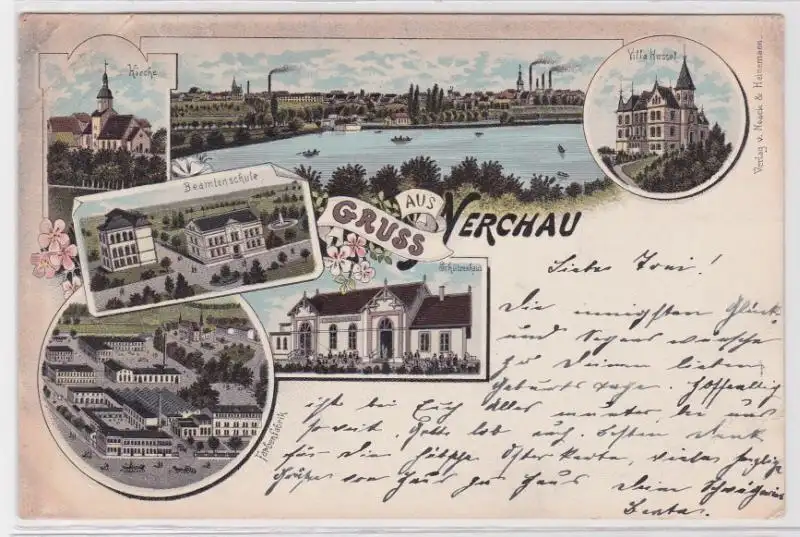 Kirche
Villa Hessel
Verlag v. Noack & Heinemann
Beamtenschule
GRUSS AUS NERCHAU
Schützenhaus
Farbenfabrik
Liebes Toni!
Die innigsten Glück
und Segens wünsche
zu Deinem lieben
Geburts tage. Hoffentlig
ist bei Euch Alles munter bei uns
so weit. Gott lob auch. Besten Dank
für die hübsche Oster karte, vielen
Grüße von Haus zu Haus Deine Schwägerin
Berta.